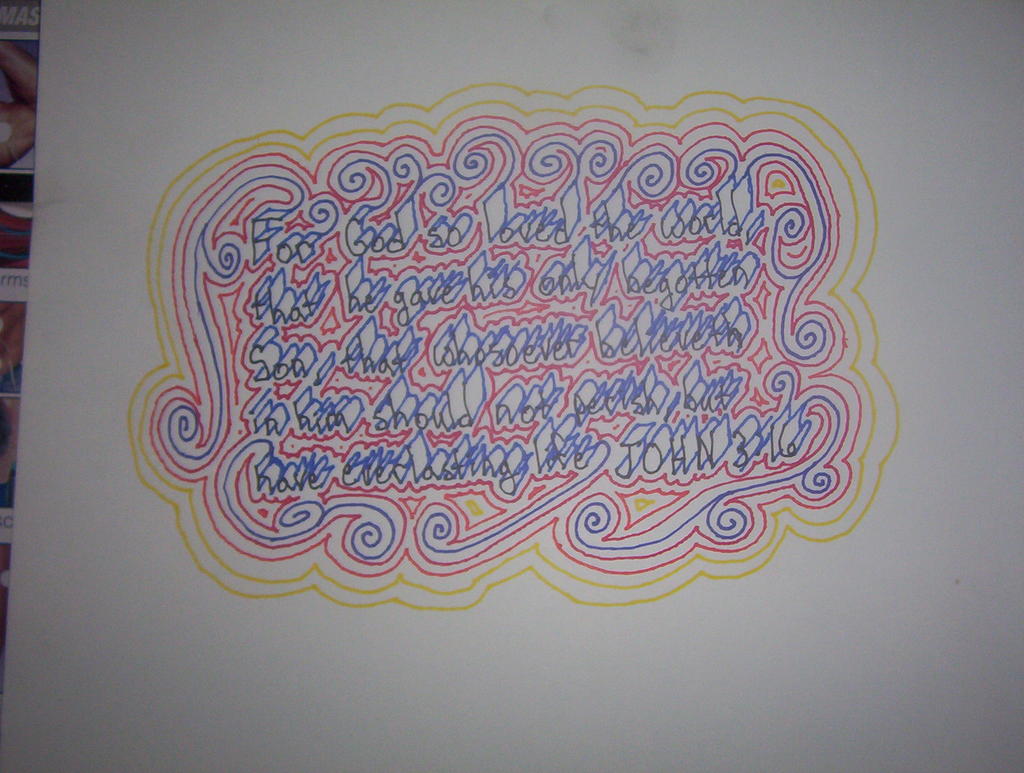 MAS
For God so loved the world,
that he gave his only begotten
Son, that whosoever believeth
in him should not perish, but
have everlasting life JOHN 3:16
rms